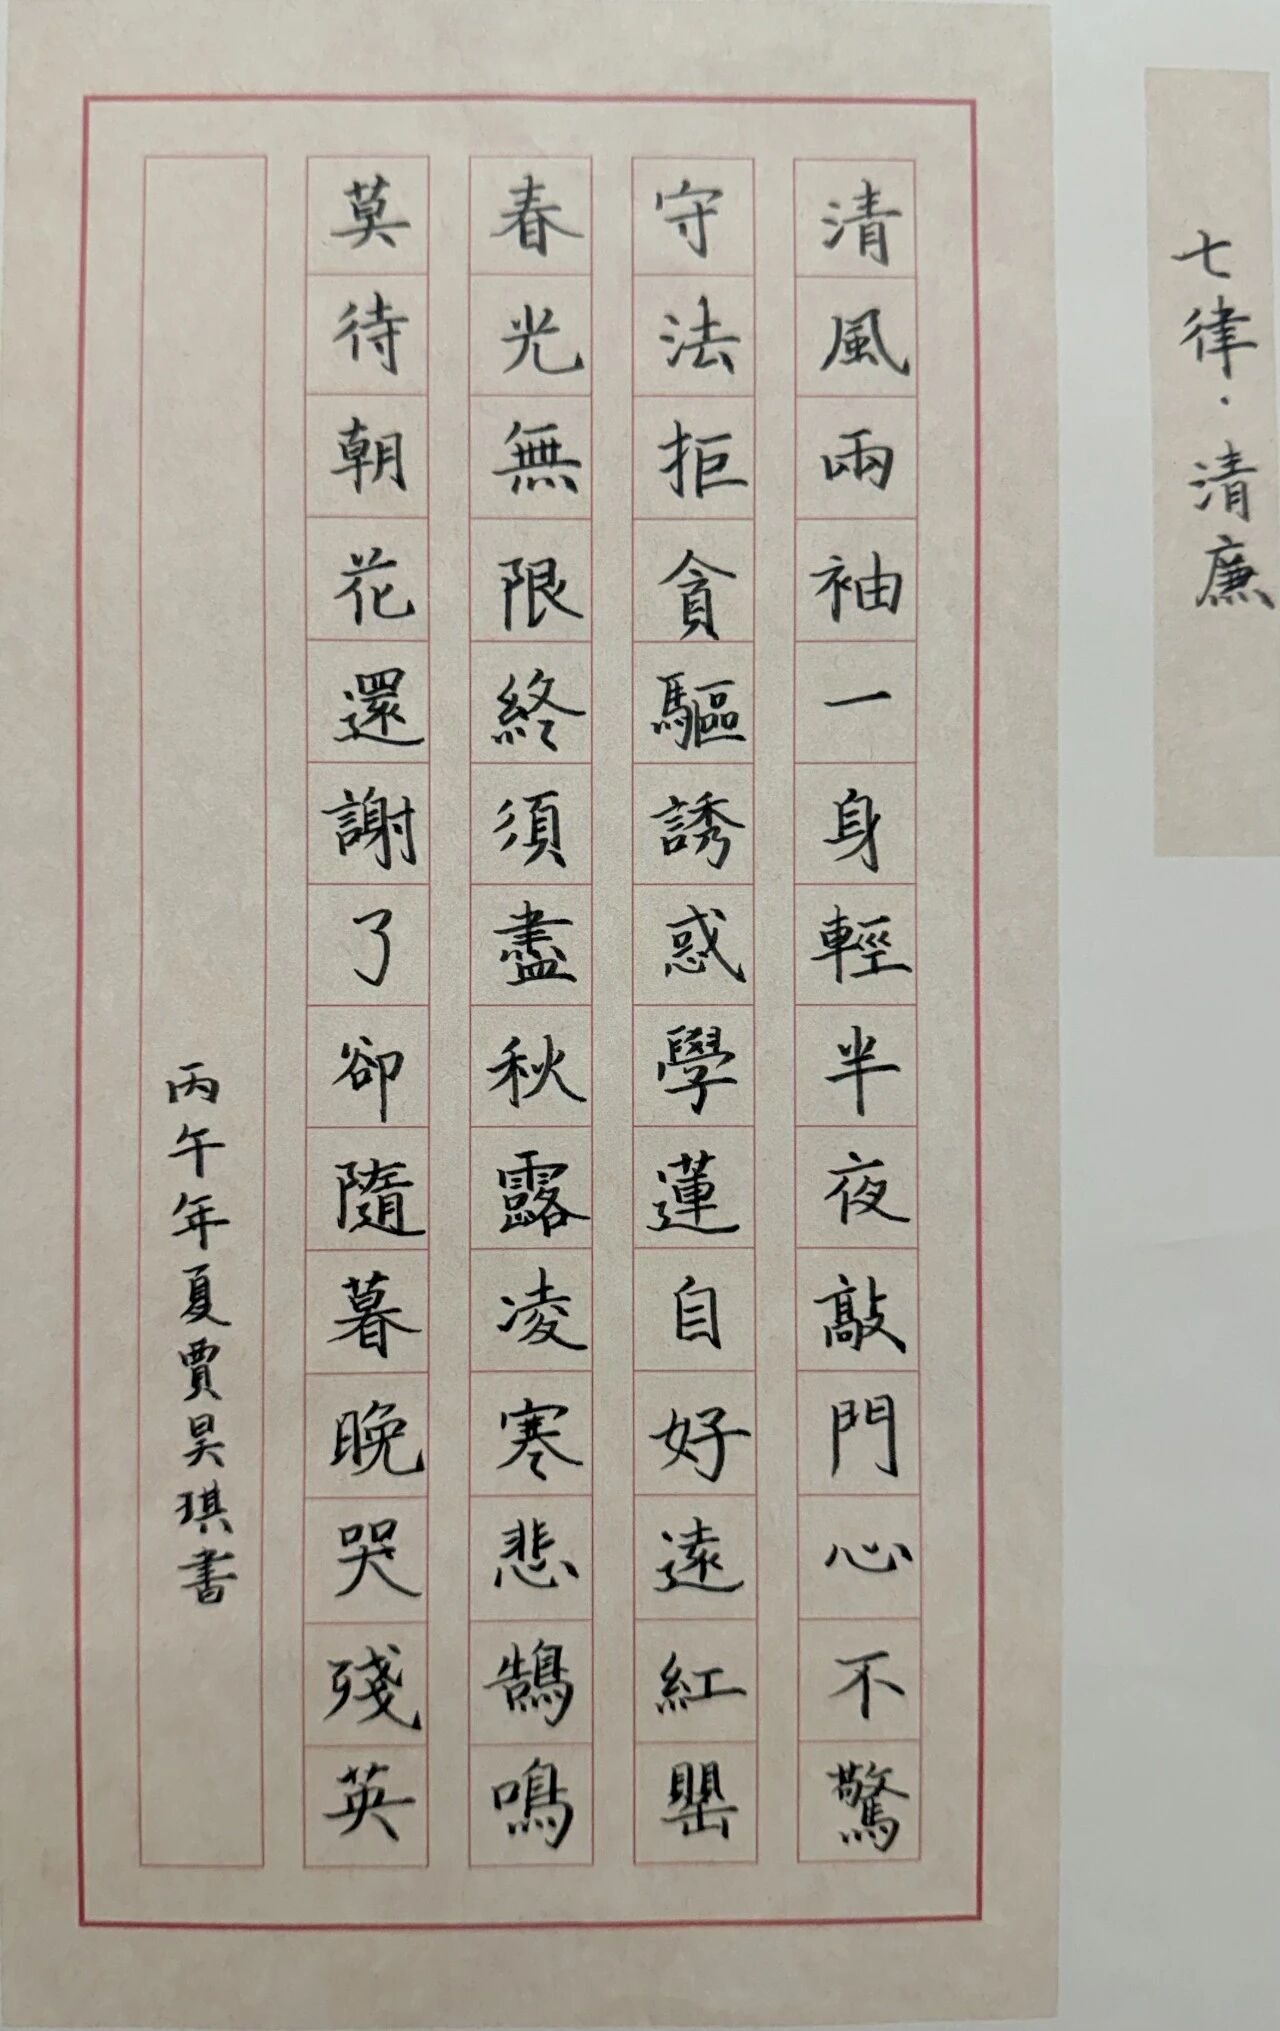 七律·清廉
清風兩袖一身輕半夜敲門心不驚
守法拒貪驅誘惑學蓮自好遠紅罌
春光無限終須盡秋露凌寒悲鵠鳴
莫待朝花還謝了卻隨暮晚哭殘英
丙午年夏賈昊琪書